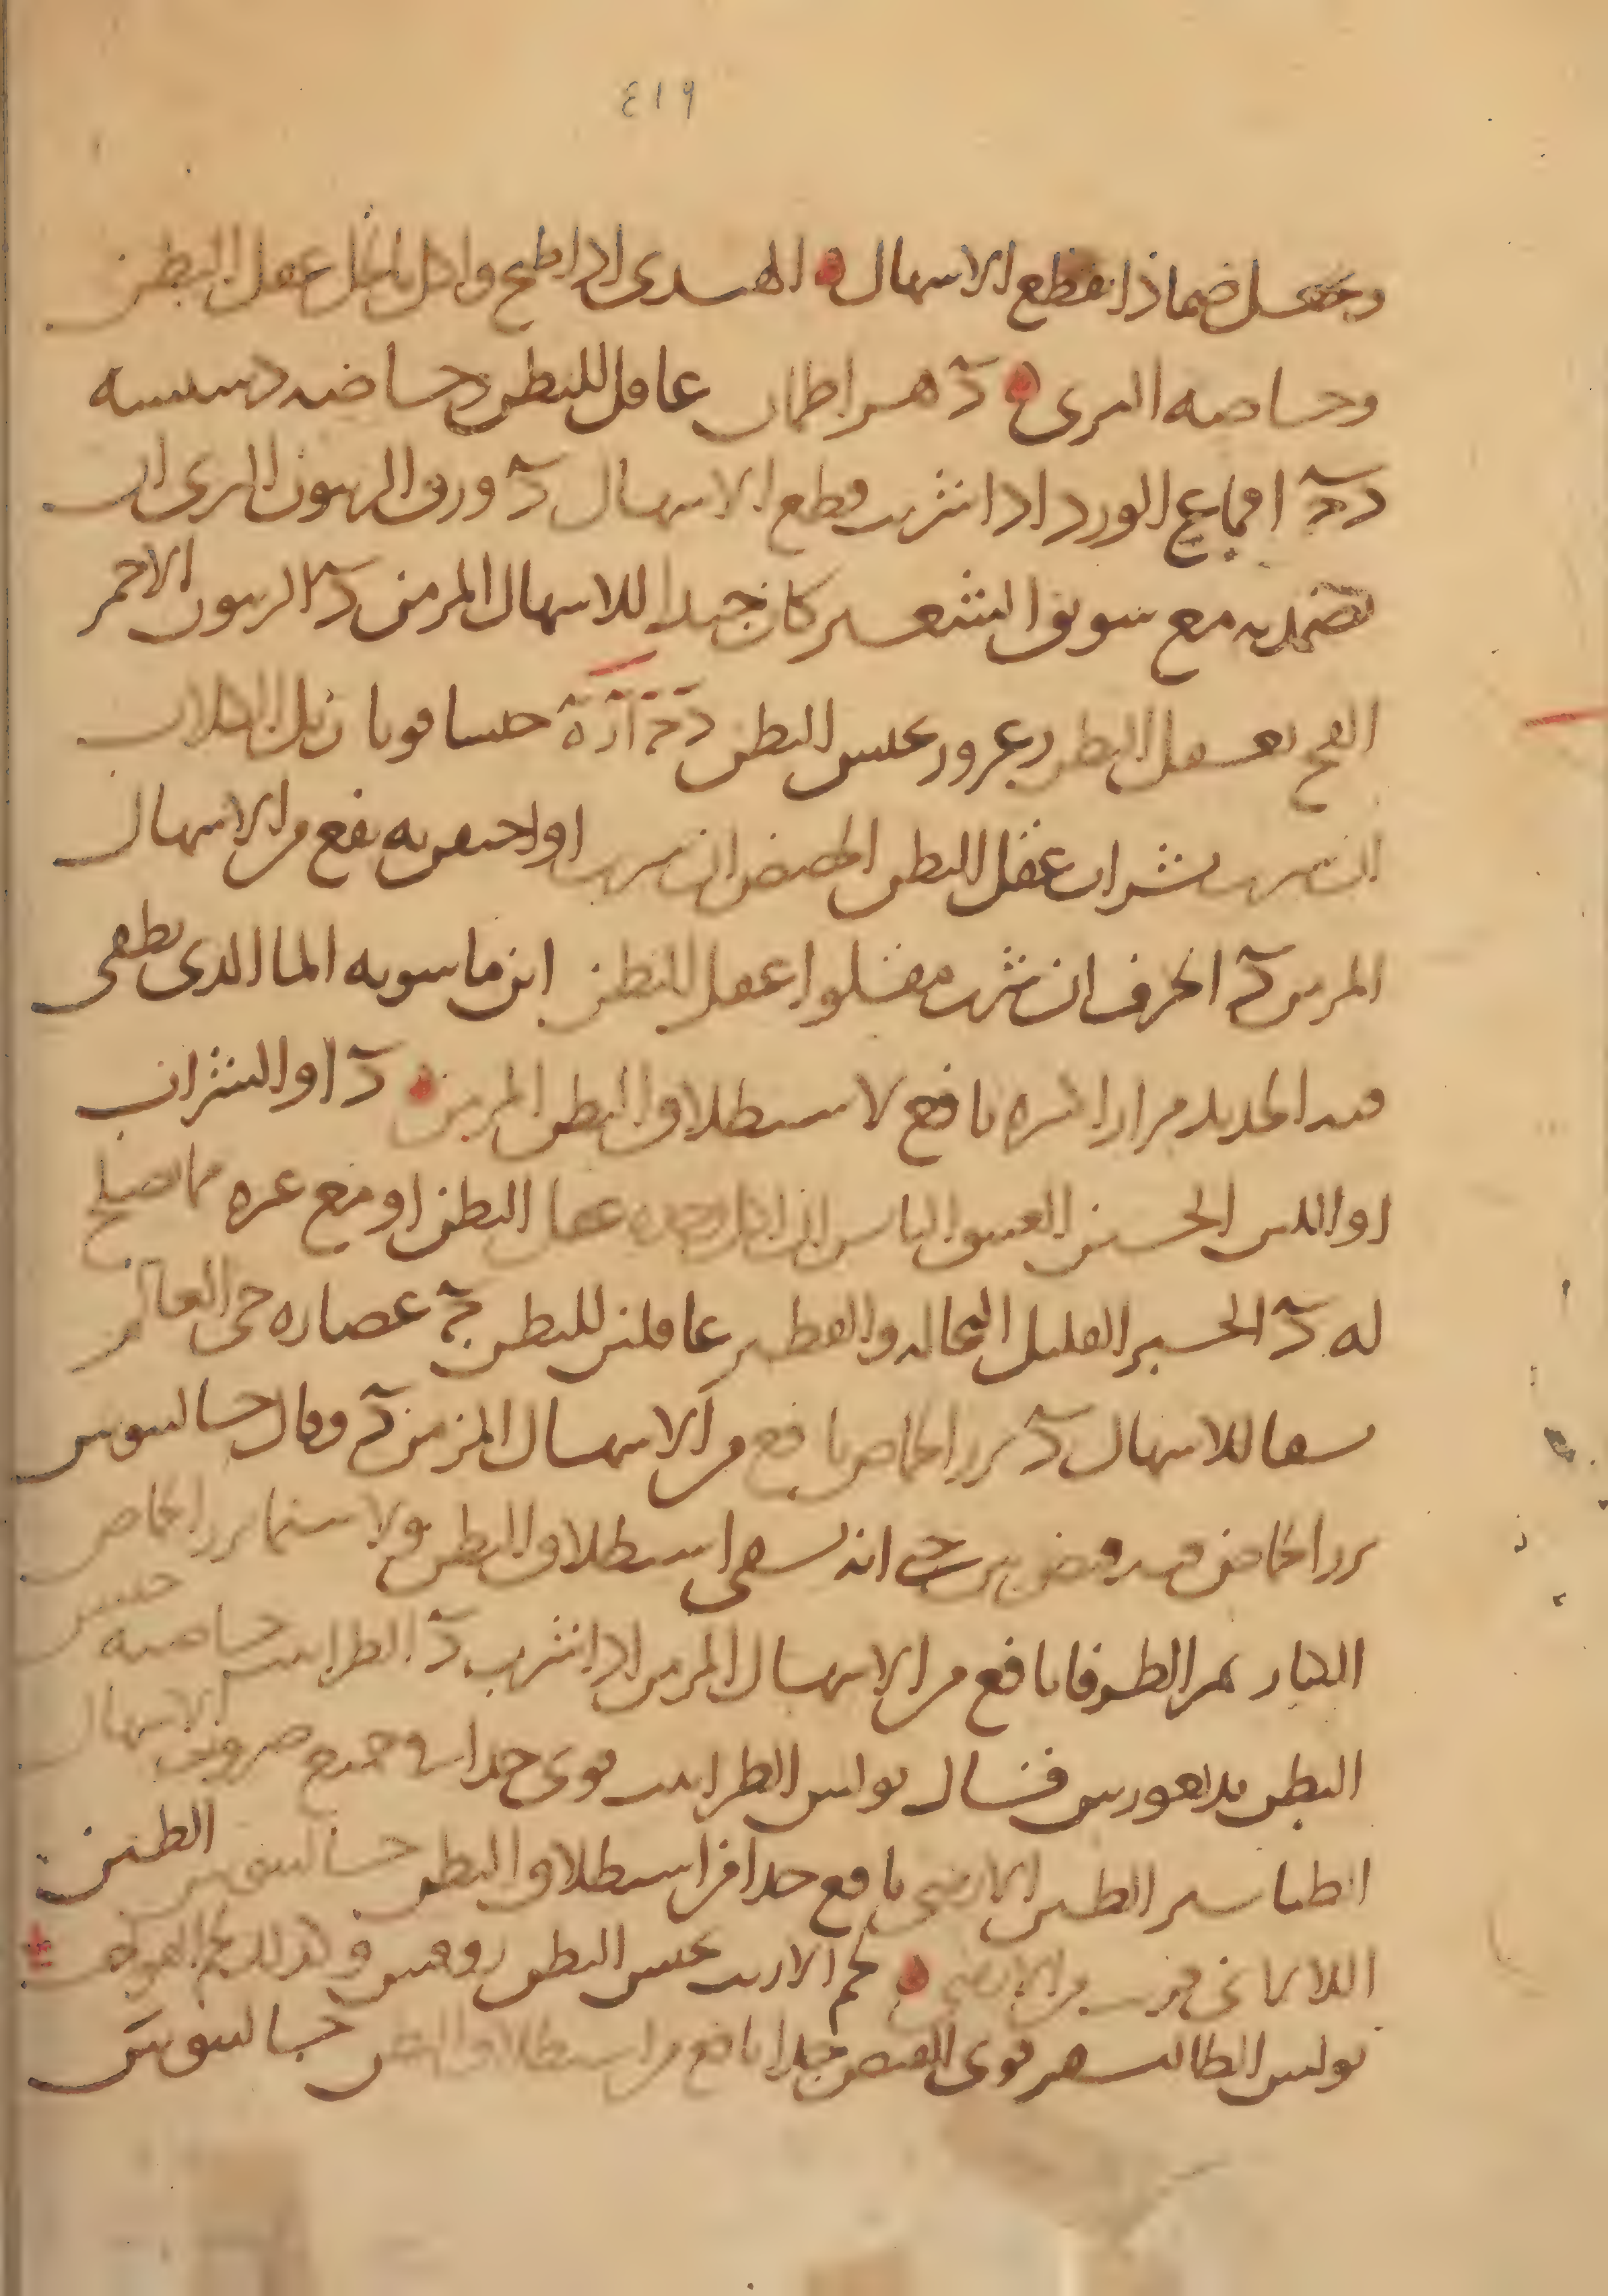 ٤١٩
وجعل ضمادا قطع الاسهال الهندبى اذا طبخ واكل بالخل عقل البطن
وخاصه البرى د هيراطمان عاقل للبطن وخاصه دسيسه
د د اقماع الورد اذا شرب قطع الاسهال د ورق الزيتون البرى ان
تضمد به مع سويق الشعير كان جيدا للاسهال المزمن د الزيتون الاحمر
الفج يعقل البطن زعرور يحبس البطن حبسا قويا زبل الكلاب
ان شرب بشراب عقل البطن الحضض ان شرب او احتقن به نفع من الاسهال
المزمن د الحرف ان شرب مقلوا عقل البطن ابن ماسويه الما الذى يطفى
فيه الحديد مرارا كثيره نافع لاستطلاق البطن المزمن د او الشراب
او اللبن الجبن العتيق اليابس ان اكل وحده عقل البطن او مع غيره مما يصلح
له د الخبز القليل النخاله والفطير عاقلين للبطن ج عصاره حى العالم
يسقا للاسهال د بزر الحماض نافع من الاسهال المزمن د وقال جالينوس
بزر الحماض فيه قبض بين حتى انه يشفى استطلاق البطن ولا سيما بزر الحماض
الكبار ثمر الطرفا نافع من الاسهال المزمن اذا شرب د الطراثيث خاصيته حبس
البطن بديغورس فقال بولس الطراثيث قوى جدا فى جميع ضروب الاسهال
الطباشير الطين الارمنى نافع جدا من استطلاق البطن جالينوس الطين
اللامانى قريب من الارمنى لحم الارنب يحبس البطن روفس وكذلك لحم
بولس الطاليسفر قوى القبض جدا نافع من استطلاق البطن جالينوس